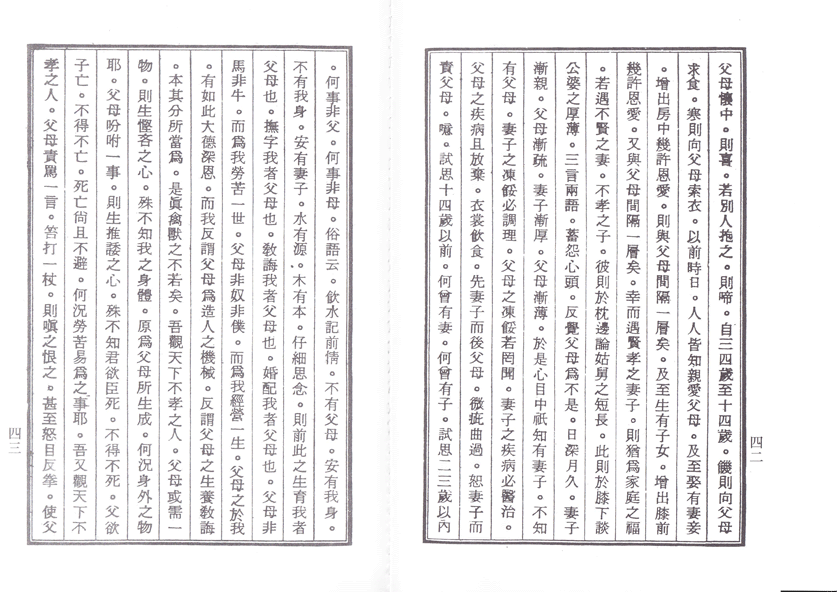 父母懷中。則喜。若別人抱之。則啼。自三四歲至十四歲。饑則向父母
求食。寒則向父母索衣。以前時日。人人皆知親愛父母。及至娶有妻妾
。增出房中幾許恩愛。則與父母間隔一層矣。及至生有子女。增出膝前
幾許恩愛。又與父母間隔一層矣。幸而遇賢孝之妻子。則猶為家庭之福
。若遇不賢之妻。不孝之子。彼則於枕邊論姑舅之短長。此則於膝下談
公婆之厚薄。三言兩語。蓄怨心頭。反覺父母為不是。日深月久。妻子
漸親。父母漸疏。妻子漸厚。父母漸薄。於是心目中祇知有妻子。不知
有父母。妻子之凍餒必調理。父母之凍餒若罔聞。妻子之疾病必醫治。
父母之疾病且放棄。衣裳飲食。先妻子而後父母。微疵曲過。恕妻子而
責父母。噫。試思十四歲以前。何曾有妻。何曾有子。試思二三歲以內
四二
。何事非父。何事非母。俗語云。飲水記前情。不有父母。安有我身。
不有我身。安有妻子。水有源。木有本。仔細思念。則前此之生育我者
父母也。撫字我者父母也。教誨我者父母也。婚配我者父母也。父母非
馬非牛。而為我勞苦一世。父母非奴非僕。而為我經營一生。父母之於我
。有如此大德深恩。而我反謂父母為造人之機械。反謂父母之生養教誨
。本其分所當為。是眞禽獸之不若矣。吾觀天下不孝之人。父母或需一
物。則生慳吝之心。殊不知我之身體。原為父母所生成。何況身外之物
耶。父母吩咐一事。則生推諉之心。殊不知君欲臣死。不得不死。父欲
子亡。不得不亡。死亡尙且不避。何況勞苦易為之事耶。吾又觀天下不
孝之人。父母責罵一言。笞打一杖。則嗔之恨之。甚至怒目反拳。使父
四三